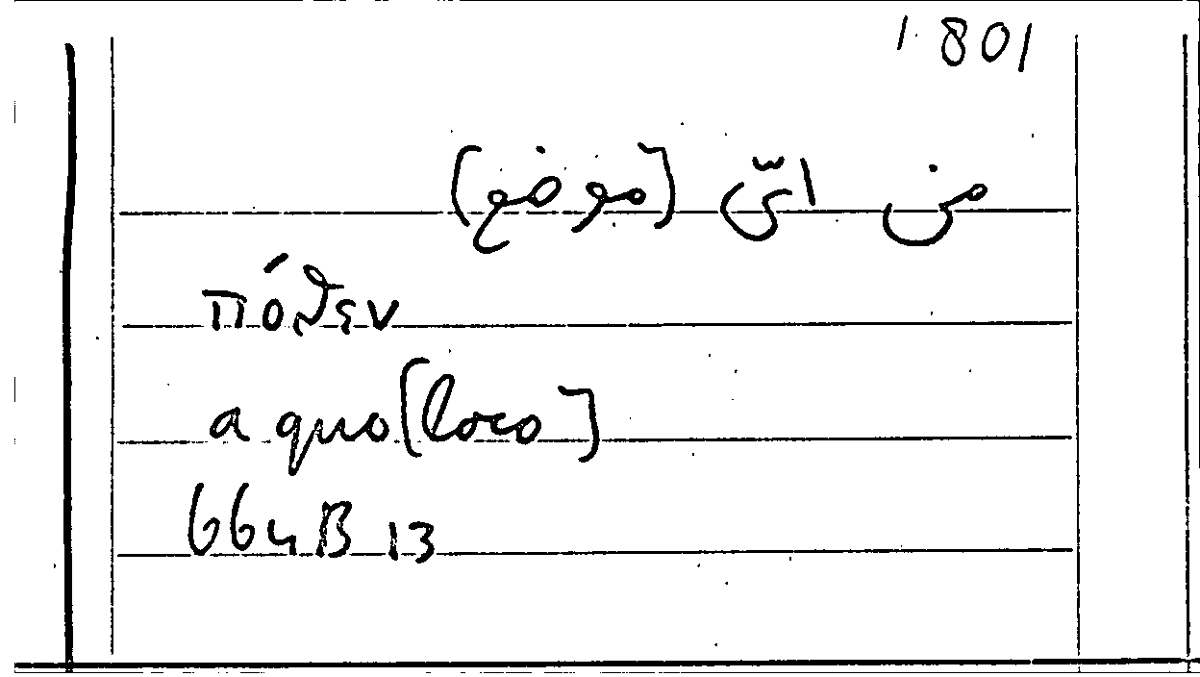 1.801
من ایّ [موضع]
πόθεν
a quo [loco]
664 B 13